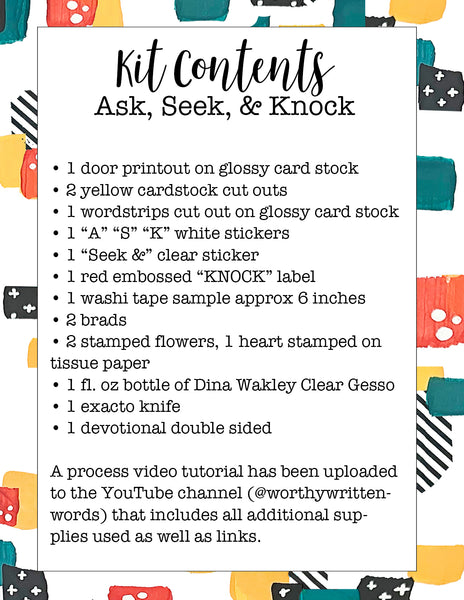 Kit Contents
Ask, Seek, & Knock
• 1 door printout on glossy card stock
• 2 yellow cardstock cut outs
• 1 wordstrips cut out on glossy card stock
• 1 “A” “S” “K” white stickers
• 1 “Seek &” clear sticker
• 1 red embossed “KNOCK” label
• 1 washi tape sample approx 6 inches
• 2 brads
• 2 stamped flowers, 1 heart stamped on
tissue paper
• 1 fl. oz bottle of Dina Wakley Clear Gesso
• 1 exacto knife
• 1 devotional double sided
A process video tutorial has been uploaded
to the YouTube channel (@worthywritten-
words) that includes all additional sup-
plies used as well as links.